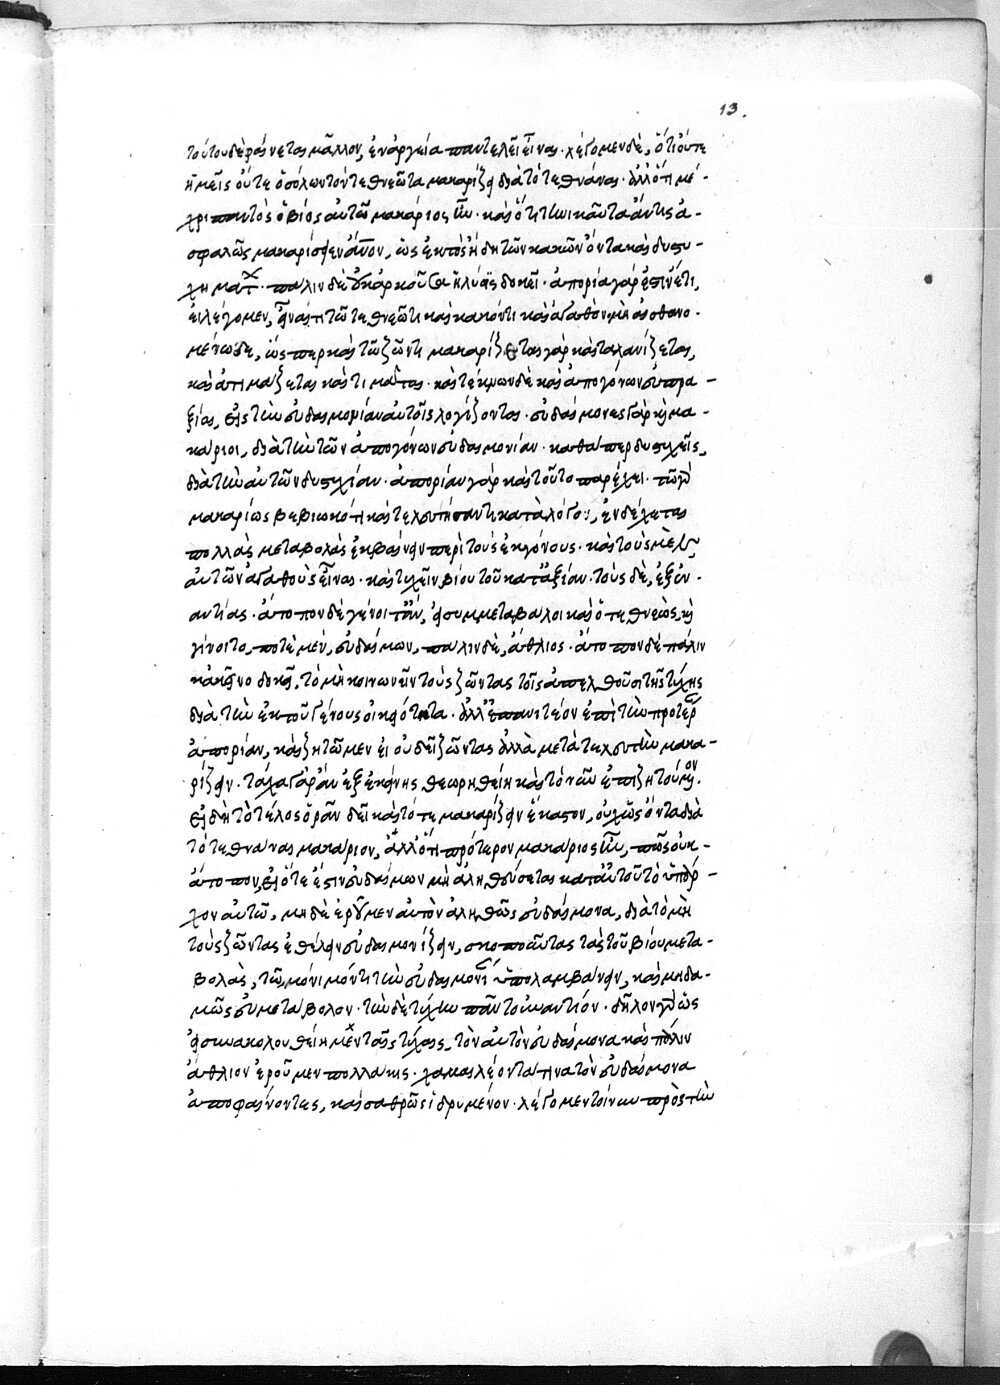 13.
τούτου δὲ φαίνεται μᾶλλον, ἐναργεία παντελεῖ εἶναι. λέγομεν δὲ, ὅτι οὔτε
ἡμεῖς οὔτε ὁ σόλων τὸν τεθνεῶτα μακαρίζει διὰ τὸ τεθνάναι. ἀλλ' ὅτι μέ-
χρι παντὸς ὁ βίος αὐτῶ μακάριος ἦν. καὶ ὅτι τηνικαῦτα ἄν τις ἀ-
σφαλῶς μακαρίσειεν ἄνθρωπον, ὡς ἐκτὸς ἤδη τῶν κακῶν ὄντα καὶ δυστυ-
χημάτων. πάλιν δὲ οὐκ ἀρκοῦσα ἡ λύσις δοκεῖ. ἀπορία γάρ ἐστιν ἔτι,
εἰ λέγομεν, εἶναί τι τῶ τεθνεῶτι καὶ κακόν τι καὶ ἀγαθὸν μὴ αἰσθανο-
μένω δὲ, ὥσπερ καὶ τῶ ζῶντι μακαρίζεται γὰρ καὶ ταλανίζεται,
καὶ ἀτιμάζεται καὶ τιμᾶται. καὶ τέκνων δὲ καὶ ἀπογόνων εὐπρα-
ξίαι, εἰς τὴν εὐδαιμονίαν αὐτοῖς λογίζονται. εὐδαίμονες γὰρ κὴ μα-
κάριοι, διὰ τὴν τῶν ἀπογόνων εὐδαιμονίαν. καθάπερ δυστυχεῖς,
διὰ τὴν αὐτῶν δυστυχίαν. ἀπορίαν γὰρ καὶ τοῦτο παρέχει. τῶ γὰρ
μακαρίως βεβιωκότι καὶ τελευτήσαντι κατὰ λόγον, ἐνδέχεται
πολλὰς μεταβολὰς ἐκβαίνειν περὶ τοὺς ἐκγόνους. καὶ τοὺς μὲν
αὐτῶν ἀγαθοὺς εἶναι. καὶ τυχεῖν βίου τοῦ κατ' ἀξίαν. τοὺς δὲ, ἐξ ἐν-
αντίας. ἄτοπον δὲ γένοιτ' ἂν, εἰ συμμεταβάλοι καὶ ὁ τεθνεὼς, κὴ
γίνοιτο, ποτὲ μὲν, εὐδαίμων, πάλιν δὲ, ἄθλιος. ἄτοπον δὲ πάλιν
κἀκεῖνο δοκεῖ, τὸ μὴ κοινωνεῖν τοὺς ζῶντας τοῖς ἀπελθοῦσι τῆς τύχης
διὰ τὴν ἐκ τοῦ γένους οἰκειότητα. ἀλλ' ἐπανιτέον ἐπὶ τὴν προτέρ
ἀπορίαν, καὶ ζητῶμεν εἰ οὐ δεῖ ζῶντας ἀλλὰ μετὰ τελευτὴν μακα-
ρίζειν. τάχα γὰρ ἂν ἐξ ἐκείνης θεωρηθείη καὶ τὸ νῦν ἐπιζητούμενον.
εἰ δὴ τὸ τέλος ὁρᾶν δεῖ καὶ τότε μακαρίζειν ἕκαστον, οὐχ ὡς ὄντα διὰ
τὸ τεθνάναι μακάριον, ἀλλ' ὅτι πρότερον μακάριος ἦν, πῶς οὐκ-
ἄτοπον, εἰ ὅτε ἐστιν εὐδαίμων μὴ ἀληθεύσεται κατ' αὐτοῦ τὸ ὑπάρ-
χον αὐτῶ, μηδὲ ἐροῦμεν αὐτὸν ἀληθῶς εὐδαίμονα, διὰ τὸ μὴ
τοὺς ζῶντας ἐθέλειν εὐδαιμονίζειν, σκοποῦντας τὰς τοῦ βίου μετα-
βολὰς, τῶ μόνιμόν τι τὴν εὐδαιμονίαν ὑπολαμβάνειν, καὶ μηδα-
μῶς εὐμετάβολον. τὴν δὲ τύχην πᾶν τοὐναντίον. δῆλον γὰρ ὡς
εἰ συνακολουθείημεν ταῖς τύχαις, τὸν αὐτὸν εὐδαίμονα καὶ πάλιν
ἄθλιον ἐροῦμεν πολλάκις. χαμαιλέοντά τινα τὸν εὐδαίμονα
ἀποφαίνοντες, καὶ σαθρῶς ἱδρυμένον. λέγομεν τοίνυν πρὸς τὴν